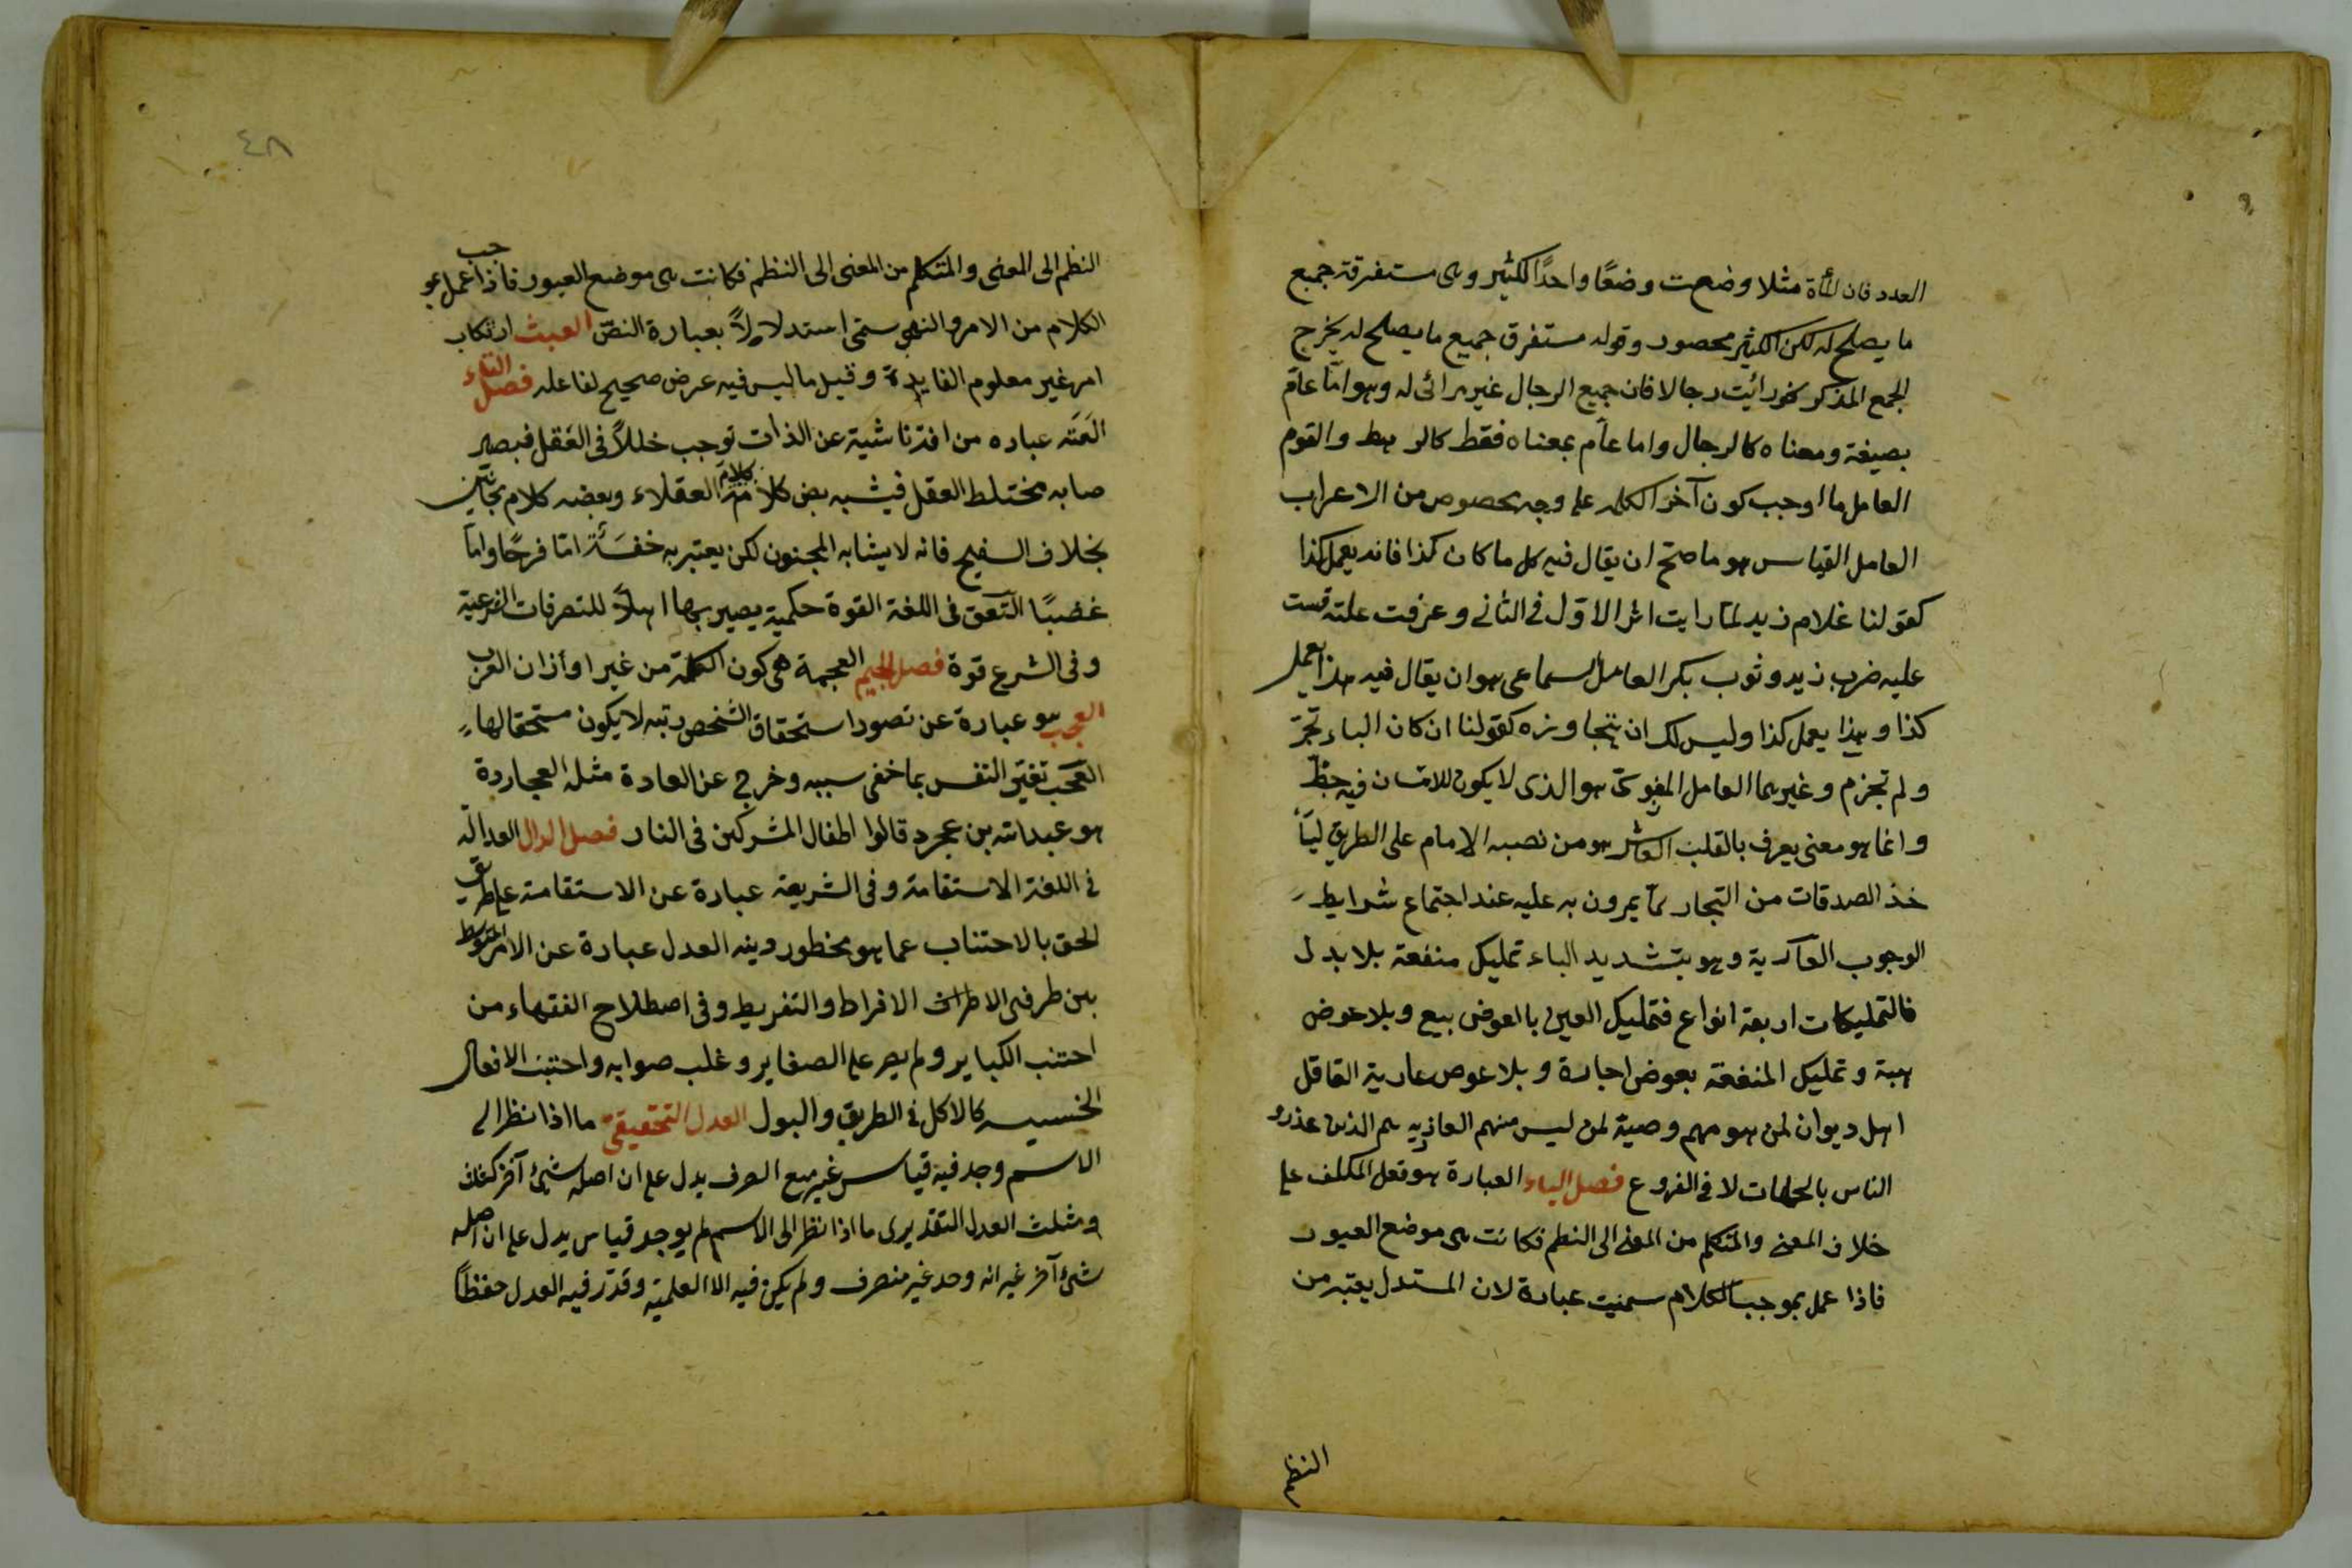 العدد فان المأة مثلا وضعت وضعًا واحدًا لكثير وهى مستغرقة جميع
ما يصلح له لكن الكثير محصور وقوله مستغرق جميع ما يصلح له يخرج
الجمع المذكر نحو رائيت رجالا فان جميع الرجال غير مرائى له وهو امّا عامّ
بصيغة ومعناه كالرجال واما عامّ بمعناه فقط كالرهط والقوم
العامل ما اوجب كون آخر الكلمه على وجه مخصوص من الاعراب
العامل القياس هو ما صحّ ان يقال فيه كل ما كان كذا فانه يعمل كذا
كقولنا غلام زيد لمّا رايت اثر الاوّل فى الثانى وعرفت علته قست
عليه ضرب زيد وثوب بكر العامل السماعى هو ان يقال فيه هذا يعمل
كذا وهذا يعمل كذا وليس لك ان تتجاوزه كقولنا ان كان الباء تجرّ
ولم تجزم وغيرهما العامل المعنوىّ هو الذى لا يكون للانسان فيه حظّ
وانما هو معنى يعرف بالقلب العاشر هو من نصبه الامام على الطريق ليأ
خذ الصدقات من التجار ممّا يمرون به عليه عند اجتماع شرايط
الوجوب العارية وهو بتشديد الياء تمليك منفعة بلا بدل
فالتمليكات اربعة انواع فتمليك العين بالعوض بيع وبلا عوض
هبة وتمليك المنفعة بعوض اجارة وبلا عوض عارية العاقل
اهل ديوان لمن هو مهم وصية لمن ليس منهم العاذريه هم الذين عذرو
الناس بالجهلات لا فى الفروع فصل الباء العبارة هو فعل المكلف على
خلاف المعنى والمتكلم من المعنى الى النظم فكانت هى موضع العبور
فاذا عمل بموجب الكلام سميت عبارة لان المستدل يعتبر من
النظم
٤٨
النظم الى المعنى والمتكلم من المعنى الى النظم فكانت هى موضع العبور فاذا عمل بموجب
الكلام من الامر والنهى سمّى استدلالاً بعبارة النصّ العبث ارتكاب
امر غير معلوم الفايدة وقيل ما ليس فيه عرض صحيح لفاعله فصل التاء
العَتَه عباره من افة ناشية عن الذات توجب خللاً فى العَقل فيصير
صابه مختلط العقل فيشبه بعض كلامه كلام العقلاء وبعضه كلام مجانين
بخلاف السفيح فانه لا يشابه المجنون لكن يعتبر به خفسَأة امّا فرحًا واماّ
غضبًا التعق فى اللغة القوة حكمية يصير بها اهلاً للتصرفات الشرعية
وفى الشرع قوة فصل الجيم العجمة هى كون الكلمة من غير اوازان العرب
العجب هو عبارة عن تصور استحقاق الشخص رتبه لا يكون مستحقا لها
العَجَب تغيّر النفس بما خفى سببه وخرج عن العادة مثله العجاردة
هو عبدالله بن عجرد قالوا اطفال المشركين فى النار فصل الدال العدالة
فى اللغة الاستقامة وفى الشريعة عبارة عن الاستقامة على طريق
الحق بالاحتناب عما هو مخطور دينه العدل عبارة عن الامر المتوسط
بين طرفى الاطراف الافراط والتفريط وفى اصطلاح الفقهاء من
احتنب الكباير ولم يصر على الصغاير وغلب صوابه واحتنب الافعال
الخسيسه كالاكل فى الطريق والبول العدل التحقيقى ما اذا نظر الى
الاسم وجد فيه قياس غير مع الصرف يدل على ان اصله شيئ آخر كثلث
ومثلث العدل التقديرى ما اذا نظر الى الاسم لم يوجد قياس يدل على ان اصله
شيئ آخر غير انه وحد غير منصرف ولم يكن فيه الا العلمية وقدّر فيه العدل حفظاً